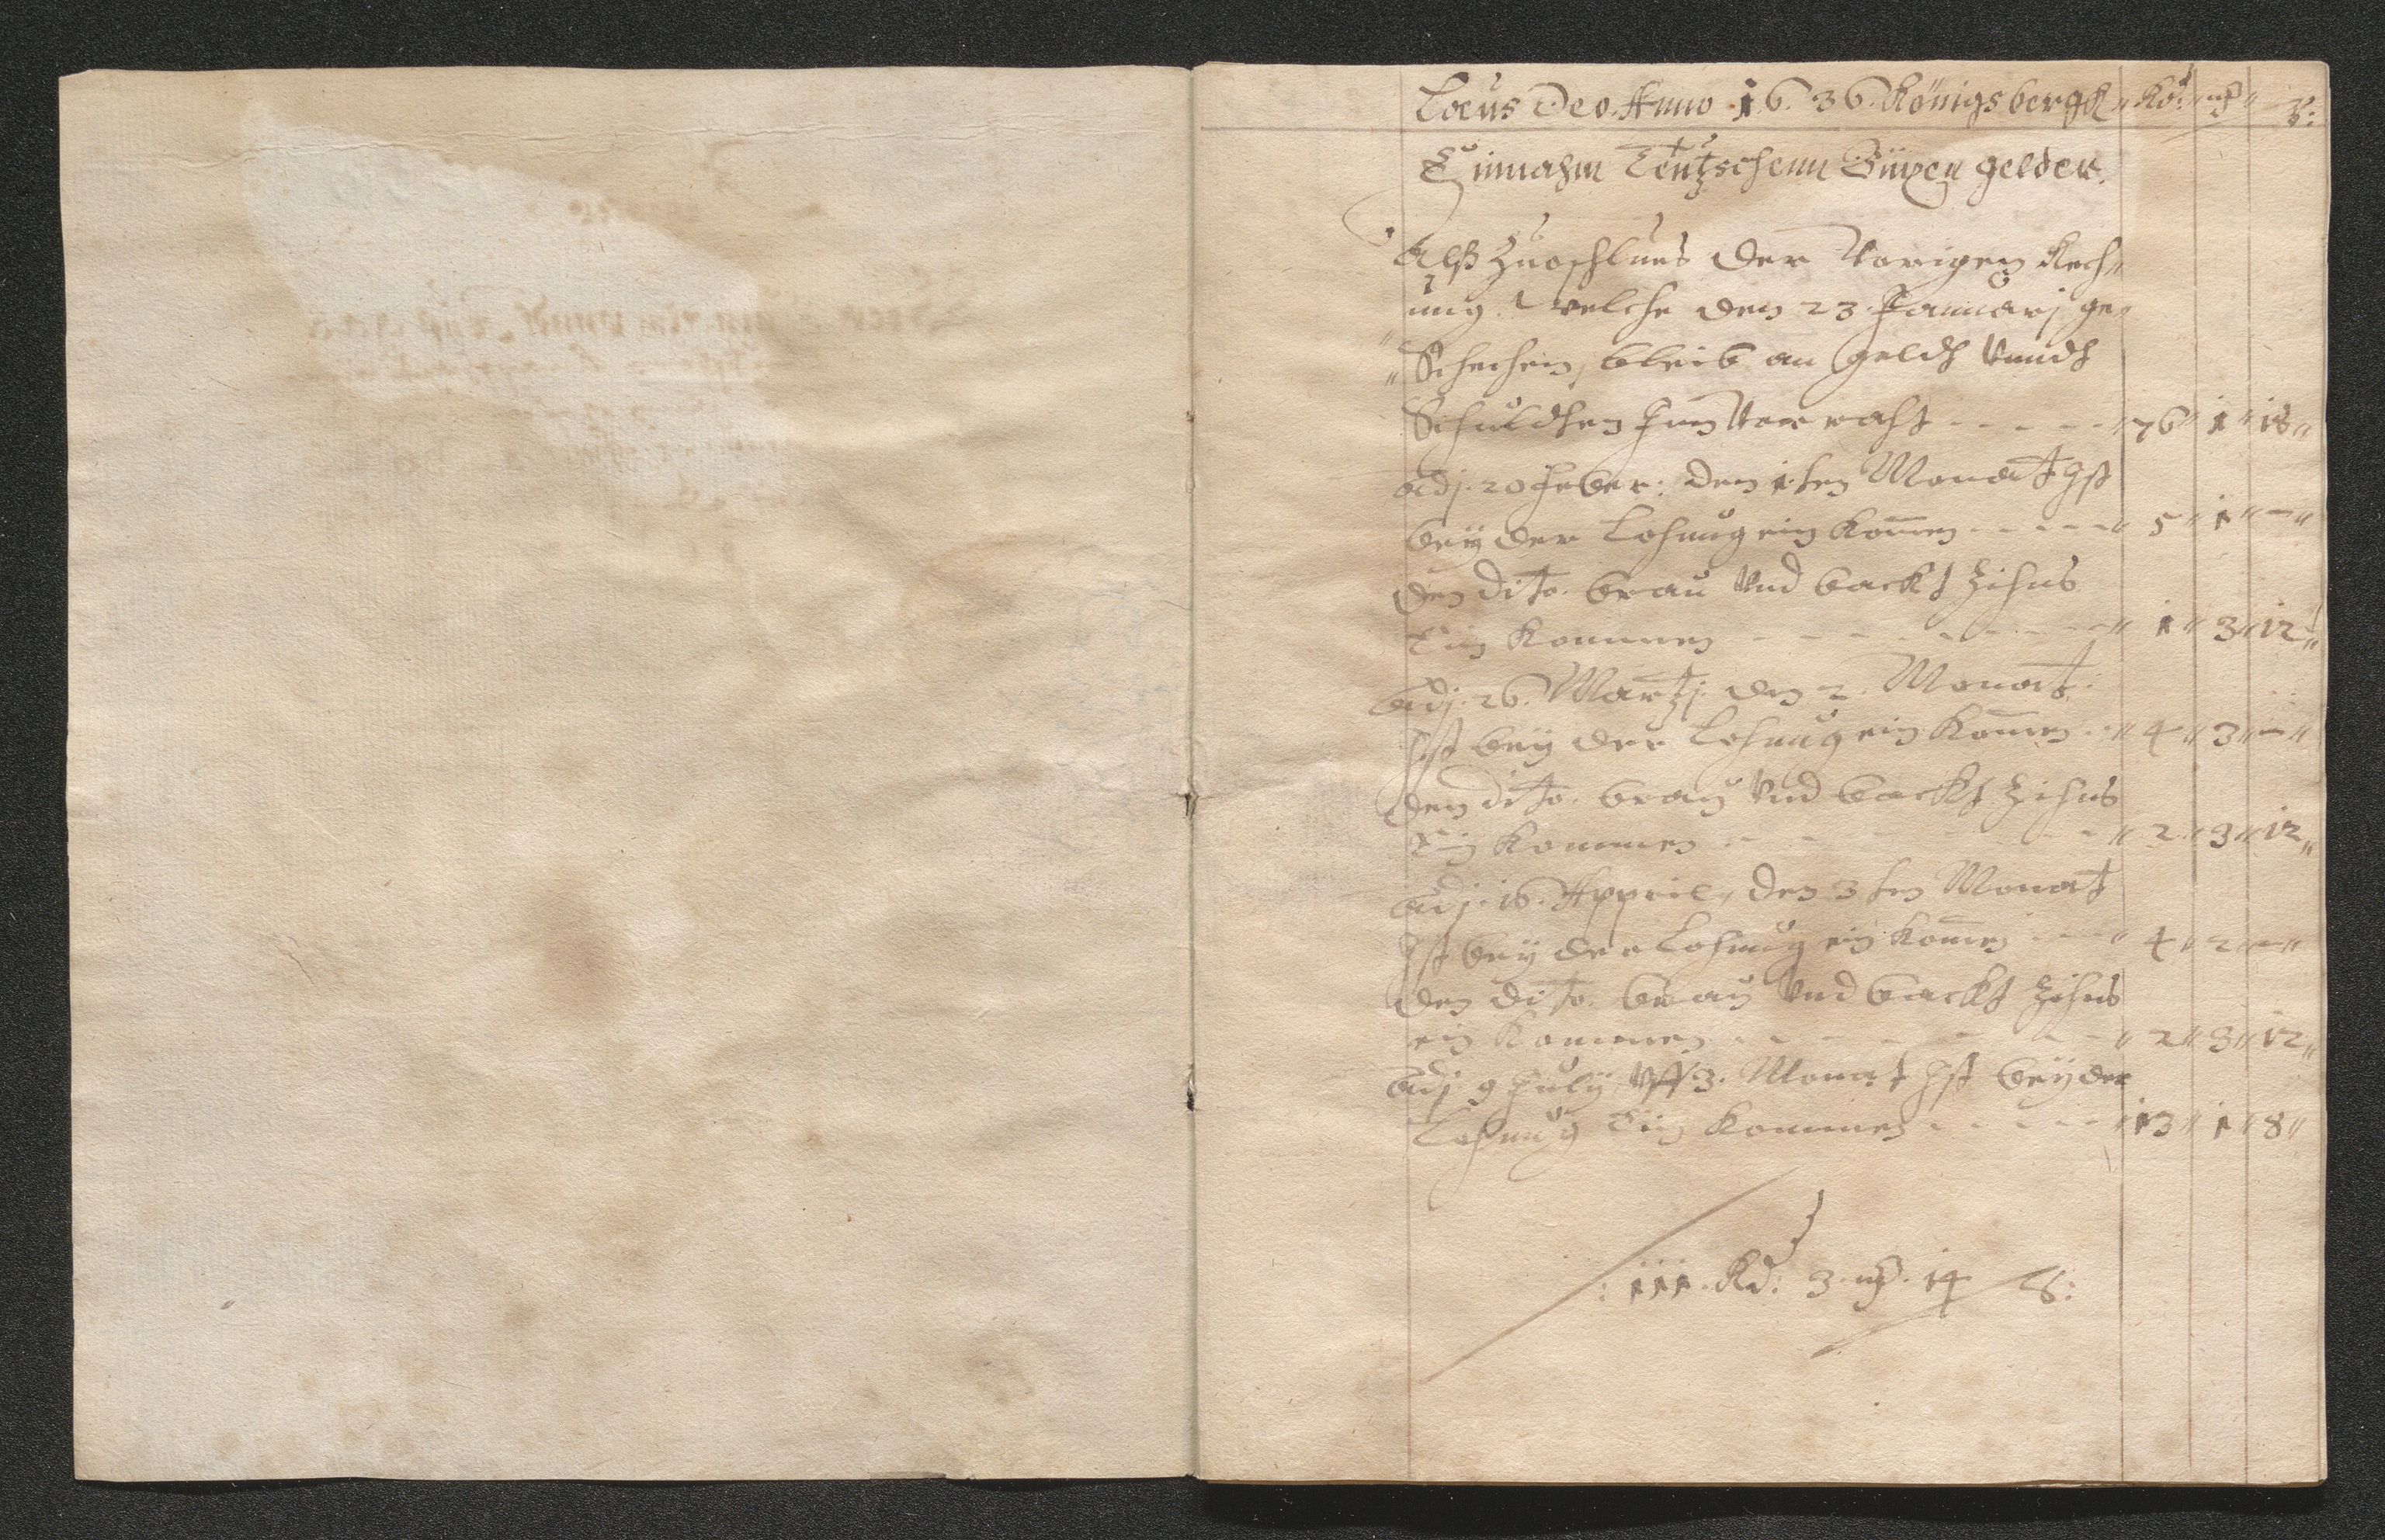 Laus Deo. Anno. 1636. Königsbergk " Rd: " mk " ß:
Einnahm Teutzschenn Büxen gelder.
Alß Zuoschlues der Vorigen Rech"
nung. welche den 23. Januarj ge"
"schechen, bleib an geldt Vnndt
Schuldthen Jm Vorraht - - - - - " 76 " 1 " 18 "
adj. 20 Feber: den 1.ten Monat Jst
bey der Lohnung ein Kom̄en - - - - - " 5 " 1 " - "
den dito. brau Vnd backt Zihns
Ein Kommen - - - - - - - " 1 " 3 " 12 "
adj. 26. Martzj. den 2. Monat.
Jst bey der Lohnung ein Kom̄en - " 4 " 3 " - "
den dito. brau Vnd backt Zihns
Ein Kommen - - - - - - " 2 " 3 " 12 "
adj. 16. Appril, den 3 ten Monat
Jst bey der Lohnung ein Kom̄en - - - " 4 " 2 " - "
den dito. brau Vnd backt Zihns
ein Kommen - - - - - - " 2 " 3 " 12 "
adj 9 July Vff 3. Monat Jst bey der
Lohnung Ein Kommen - - - - - " 13 " 1 " 8 "
: 111. Rd: 3. mk. 14 ß: